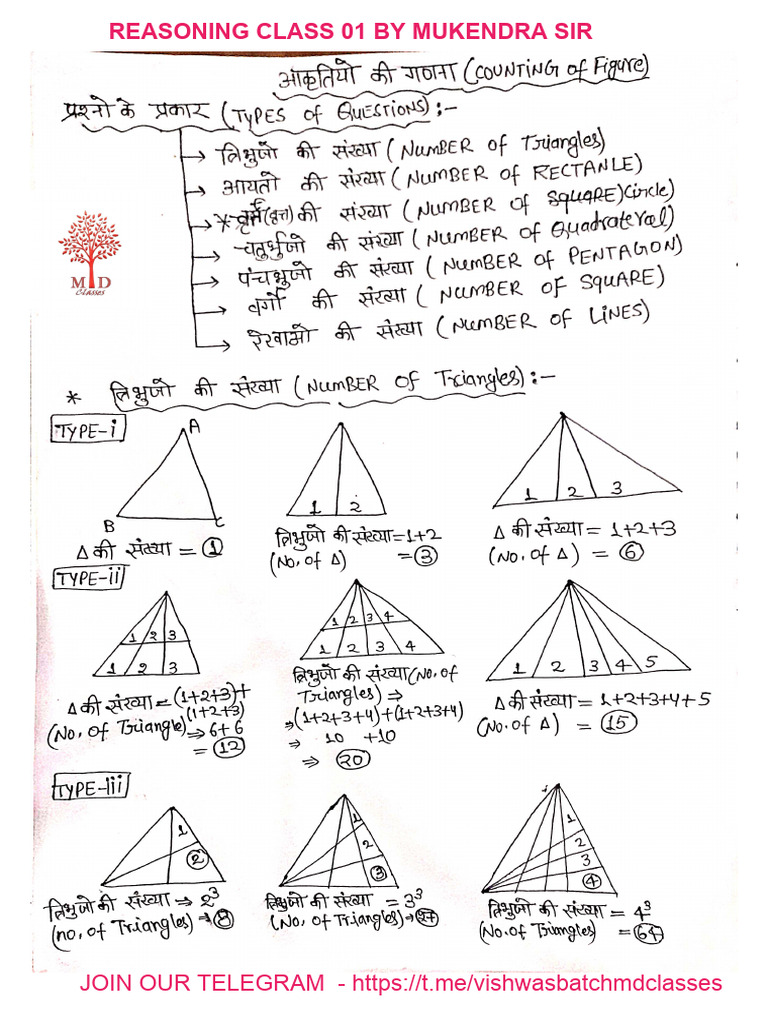 REASONING CLASS 01 BY MUKENDRA SIR
आकृतियो की गणना (COUNTING of Figure)
प्रश्नो के प्रकार (TYPES of QUESTIONS) :-
→ त्रिभुजो की संख्या (NUMBER of Triangles)
→ आयतो की संख्या (NUMBER of RECTANLE)
→ * (वृत्त) की संख्या (NUMBER of SQUARE) Circle)
→ चतुर्भुजो की संख्या (NUMBER of Quadrateral)
→ पंचभुजो की संख्या (NUMBER of PENTAGON)
→ वर्गो की संख्या (NUMBER OF SQUARE)
→ रेखाओ की संख्या (NUMBER OF LINES)
MD
Classes
* त्रिभुजो की संख्या (NUMBER OF Triangles) :-
TYPE-i
A
B C
1 2
1 2 3
Δ की संख्या = 1
त्रिभुजो की संख्या = 1+2
(No. of Δ) = 3
Δ की संख्या = 1+2+3
(No. of Δ) = 6
TYPE-ii
1 2 3
1 2 3
1 2 3 4
1 2 3 4
1 2 3 4 5
Δ की संख्या = (1+2+3)+
(1+2+3)
(No. of Triangle) ⇒ 6+6
= 12
त्रिभुजो की संख्या (No. of
Triangles) ⇒
⇒ (1+2+3+4)+(1+2+3+4)
⇒ 10 +10
⇒ 20
Δ की संख्या = 1+2+3+4+5
(No. of Δ) = 15
TYPE-iii
1
2
1
2
3
1
2
3
4
त्रिभुजो की संख्या → 2³
(no. of Triangles) → 8
त्रिभुजो की संख्या = 3³
(No. of Triangles) → 27
त्रिभुजो की संख्या = 4³
(No. of Triangles) = 64
JOIN OUR TELEGRAM - https://t.me/vishwasbatchmdclasses